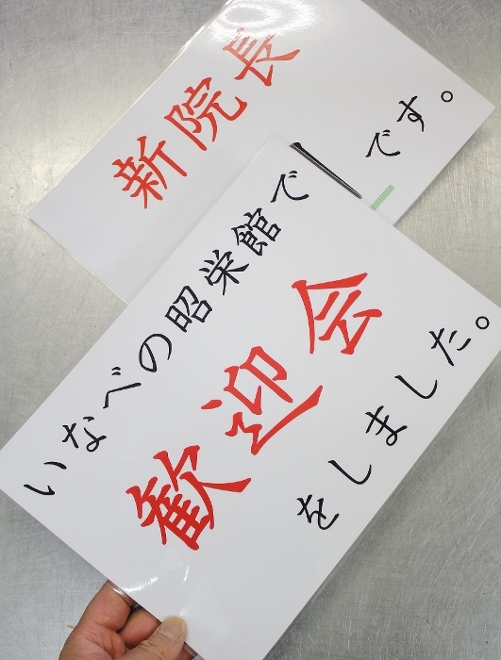 新院長
です。
いなべの昭栄館で
歓迎会
をしました。